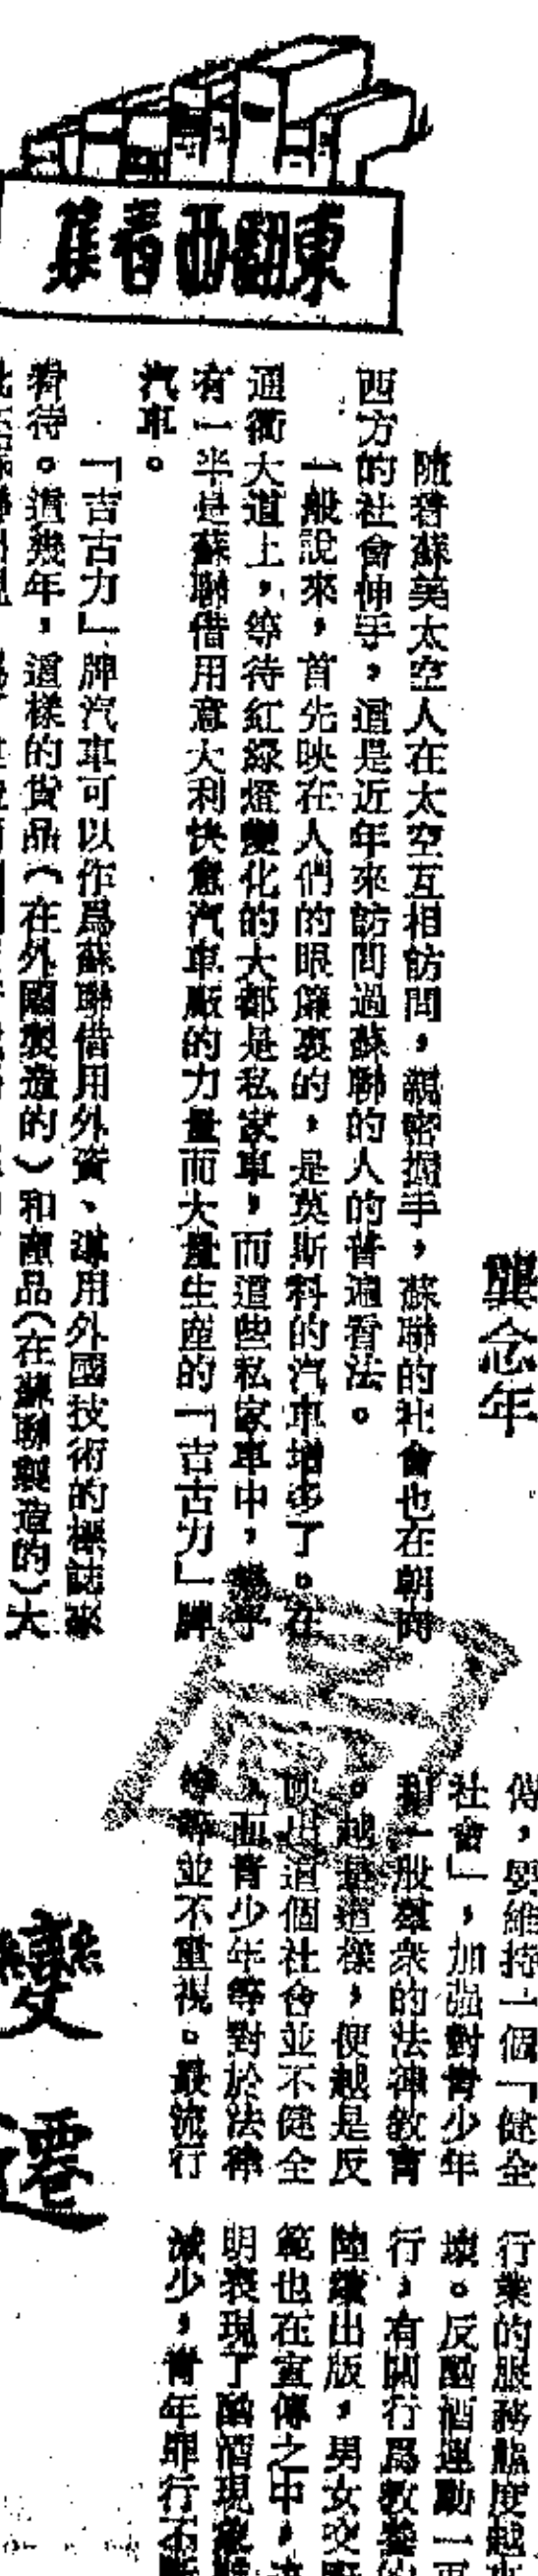 東翻西看集
龔念年
隨着蘇美太空人在太空互相訪問,親密握手,蘇聯的社會也在朝向
西方的社會伸手,這是近年來訪問過蘇聯的人的普遍看法。
一般說來,首先映在人們的眼簾裏的,是莫斯科的汽車增多了。在
通衢大道上,等待紅綠燈變化的大都是私家車,而這些私家車中,幾乎
有一半是蘇聯借用意大利快意汽車廠的力量而大量生產的「吉古力」牌
汽車。
「吉古力」牌汽車可以作爲蘇聯借用外資、運用外國技術的標誌來
看待。這幾年,這樣的貨品(在外國製造的)和產品(在蘇聯製造的)大
變遷
傳,要維持一個「健全
社會」,加强對青少年
和一般羣衆的法律教育
。越是這樣,便越是反
映出這個社會並不健全
,而青少年等對於法律
等等並不重視。最流行
行業的服務態度越
壞。反酗酒運動一再
行,有關行爲教養
陸續出版,男女交
範也在宣傳之中,
明表現了酗酒現象
減少,青年罪行不